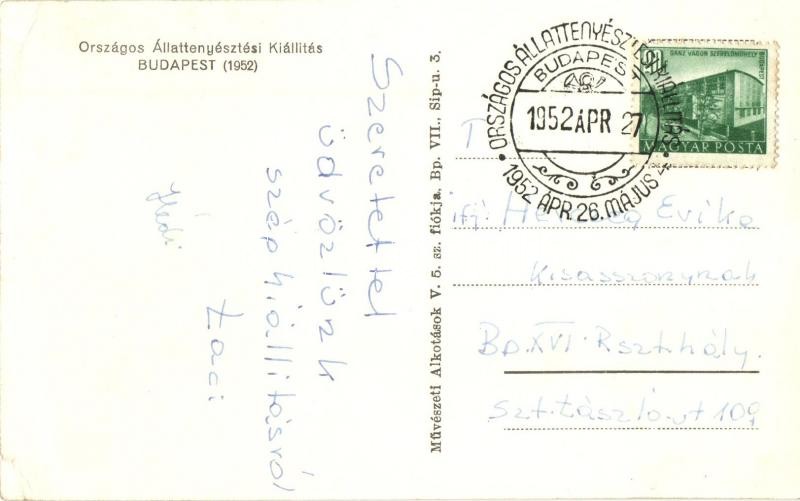 Országos Állattenyésztési Kiállítás
BUDAPEST (1952)
Szeretettel
üdvözlünk
szép kiállításról
Laci
Hédi
Művészeti Alkotások V. 5. sz. fiókja, Bp. VII., Sip-u. 3.
ORSZÁGOS ÁLLATTENYÉSZTÉSI KIÁLLITÁS
BUDAPEST
1952 ÁPR 27
1952 ÁPR. 26. MÁJUS 4
GANZ VAGON SZERELŐMŰHELY
BUDAPEST
MAGYAR POSTA
ifj. Evike
Kisasszonynak
Bp. XVI. Rszt.hály.
Szt. László ut 109